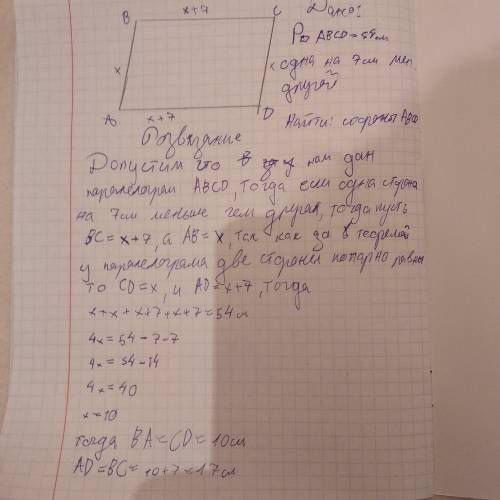 x+7
B
C
Дано:
P ABCD=54см
одна на 7см мен.
другой
Найти: стороны ABCD
x
x
A
x+7
D
Розвязание
Допустим что нам дан
паралелограм ABCD, тогда если одна сторона
на 7см меньше чем другая, тогда пусть
BC = x+7, а AB = x, так как за теоремой
у паралелограма две стороны попарно равны
то CD=x, и AD=x+7, тогда
x+x+x+7+x+7=54см
4x=54-7-7
4x=54-14
4x=40
x=10
тогда BA=CD=10см
AD=BC=10+7=17см